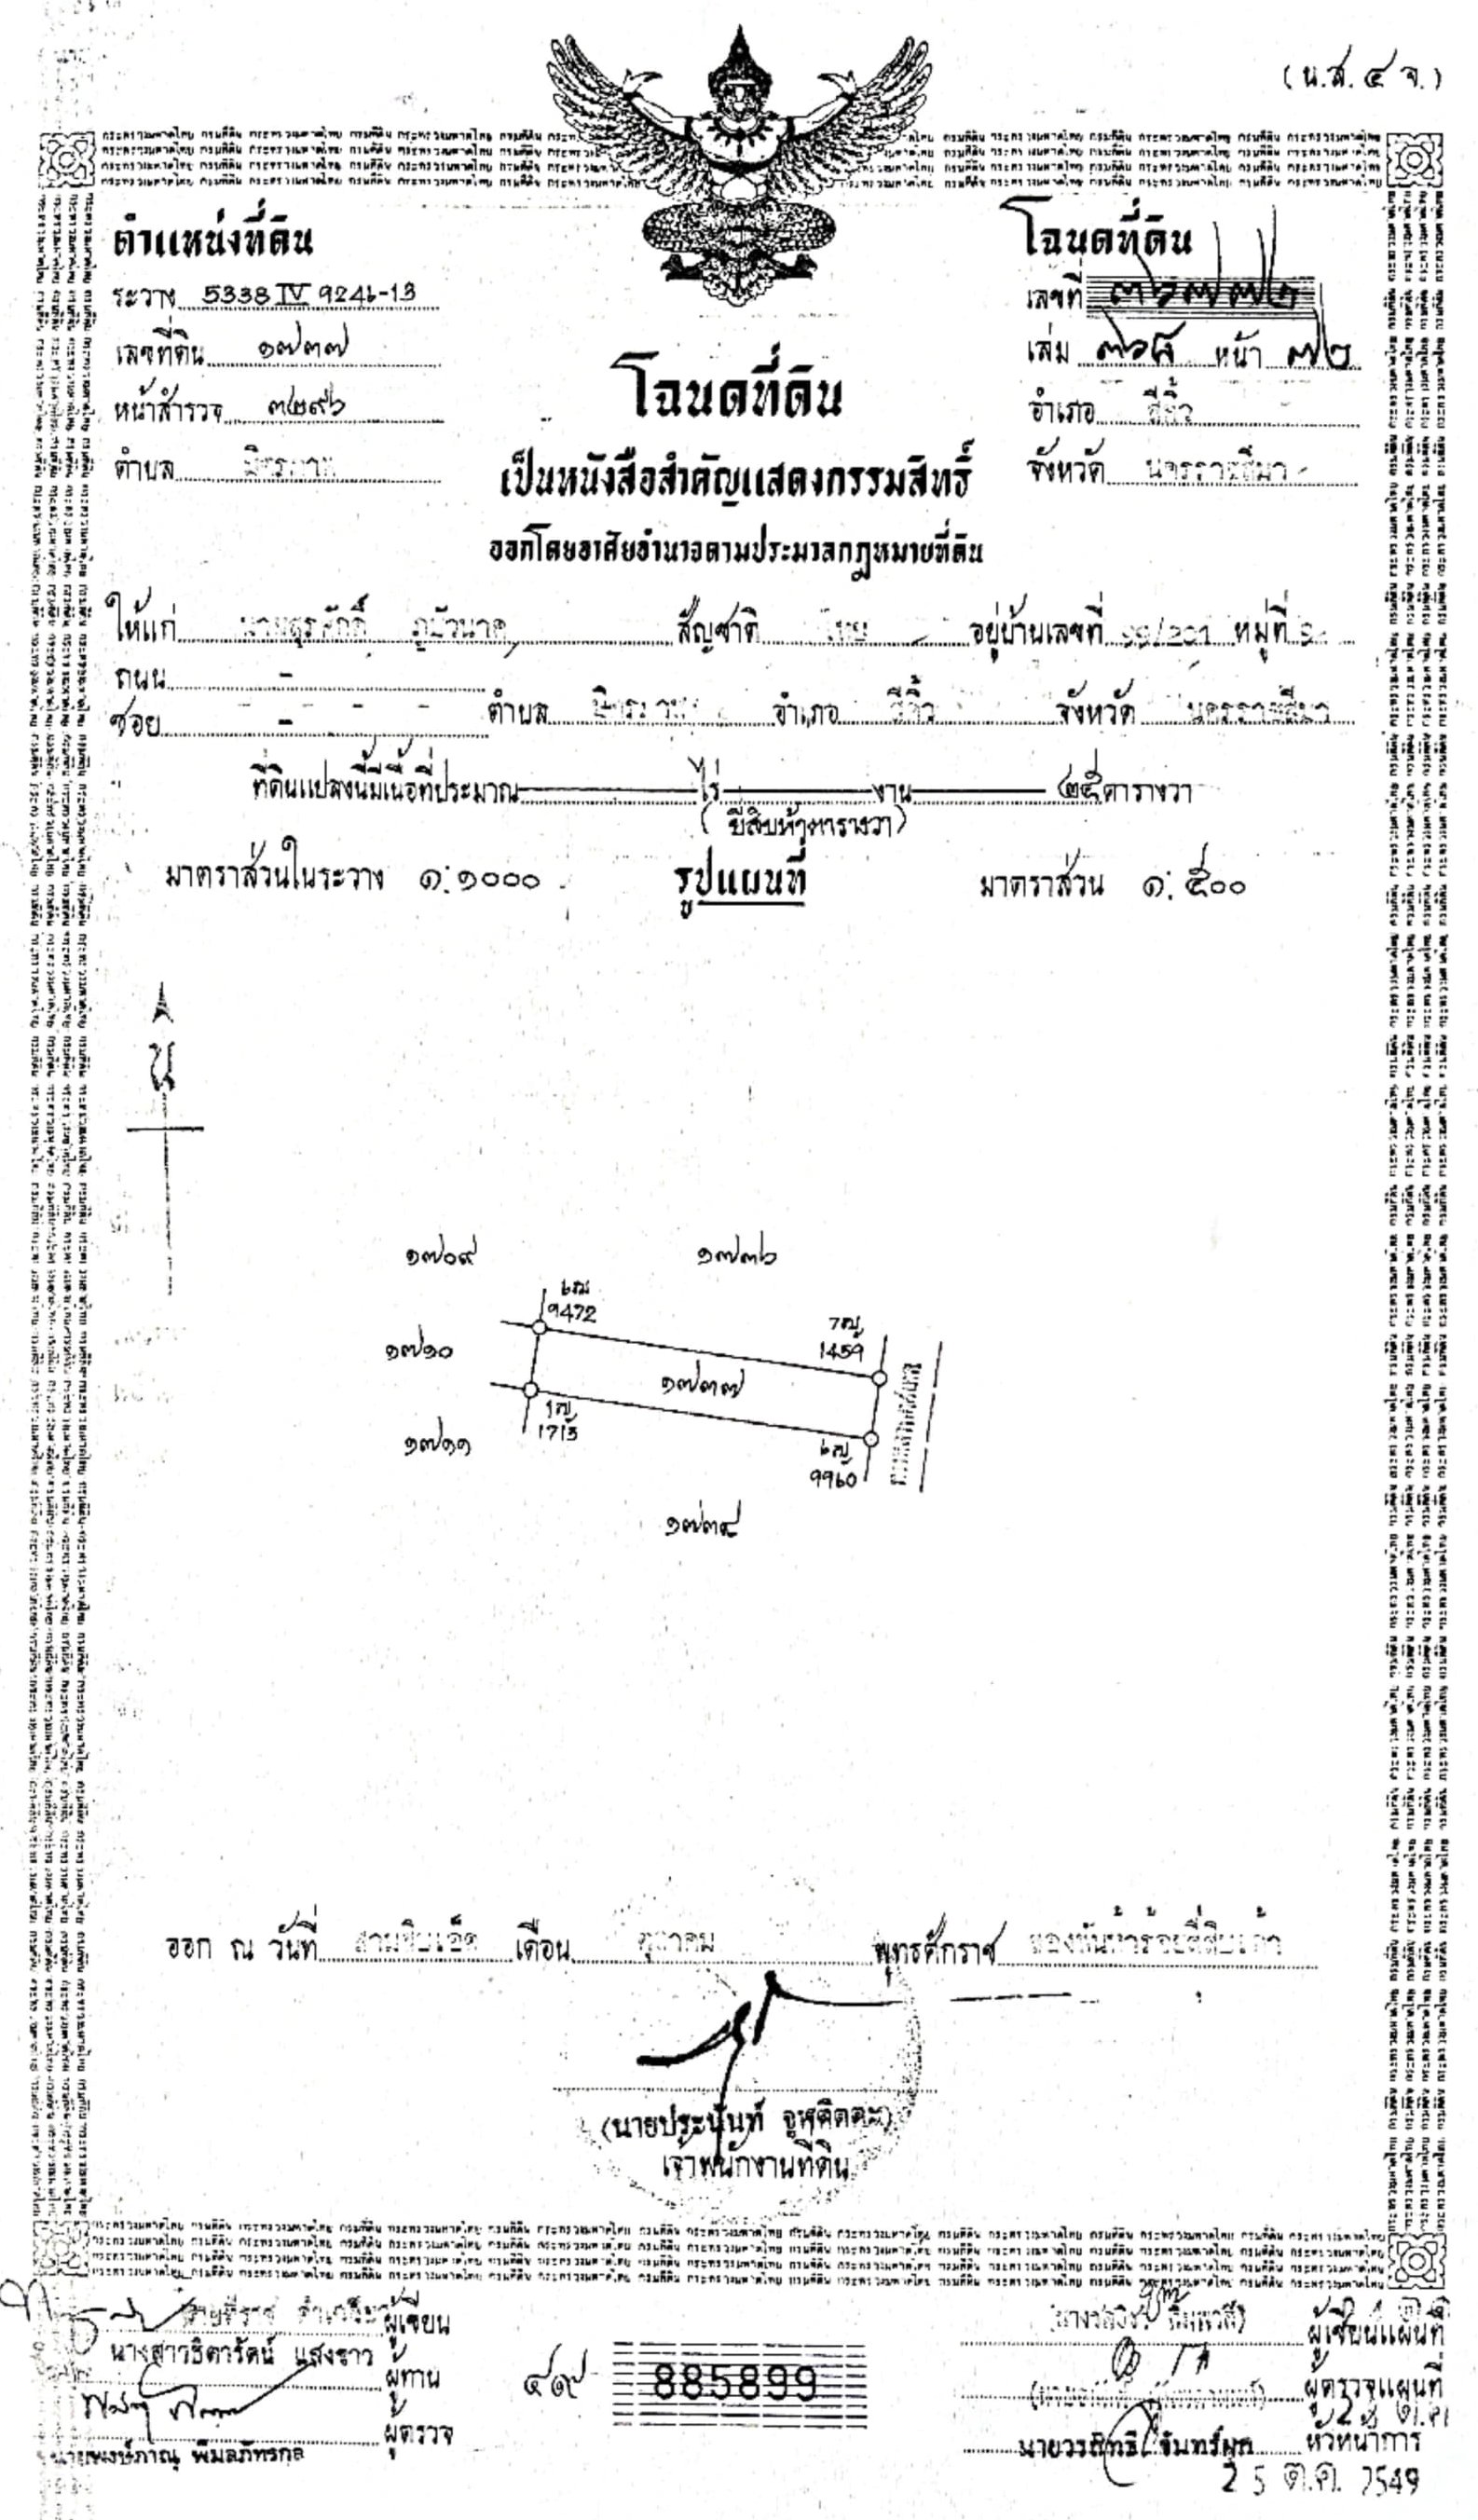 (น.ส. ๔ จ.)
ตำแหน่งที่ดิน
ระวาง 5338 IV 9246-13
เลขที่ดิน ๑๗๓๗
หน้าสำรวจ ๓๒๙๖
ตำบล มิตรภาพ
โฉนดที่ดิน
เลขที่ ๓๖๗๗๒
เล่ม ๓๖๘ หน้า ๗๒
อำเภอ สีคิ้ว
จังหวัด นครราชสีมา
โฉนดที่ดิน
เป็นหนังสือสำคัญแสดงกรรมสิทธิ์
ออกโดยอาศัยอำนาจตามประมวลกฎหมายที่ดิน
ให้แก่ นายสุรศักดิ์ ภูบัวนาค สัญชาติ ไทย อยู่บ้านเลขที่ หมู่ที่
ถนน -
ซอย - ตำบล มิตรภาพ อำเภอ สีคิ้ว จังหวัด นครราชสีมา
ที่ดินแปลงนี้มีเนื้อที่ประมาณ ไร่ งาน ๒๕ ตารางวา
(ยี่สิบห้าตารางวา)
มาตราส่วนในระวาง ๑:๑๐๐๐ รูปแผนที่ มาตราส่วน ๑:๕๐๐
น
๑๗๐๙ ๑๗๓๖
9472
1459
๑๗๑๐
๑๗๓๗
1713
๑๗๑๑
9960
๑๗๓๘
ออก ณ วันที่ สามสิบเอ็ด เดือน ตุลาคม พุทธศักราช สองพันห้าร้อยสี่สิบเก้า
(นายประนันท์ จูฬคิดคะ)
เจ้าพนักงานที่ดิน
ผู้เขียน
นางสาวธิดารัตน์ แสงราว ผู้ทาน
ผู้ตรวจ
นายพงษ์ภาณุ พิมลภัทรกุล
๔๙ 885899
ผู้เขียนแผนที่
ผู้ตรวจแผนที่
นายวรสิทธิ์ จันทร์ผุด หัวหน้าการ
25 ต.ค. 2549